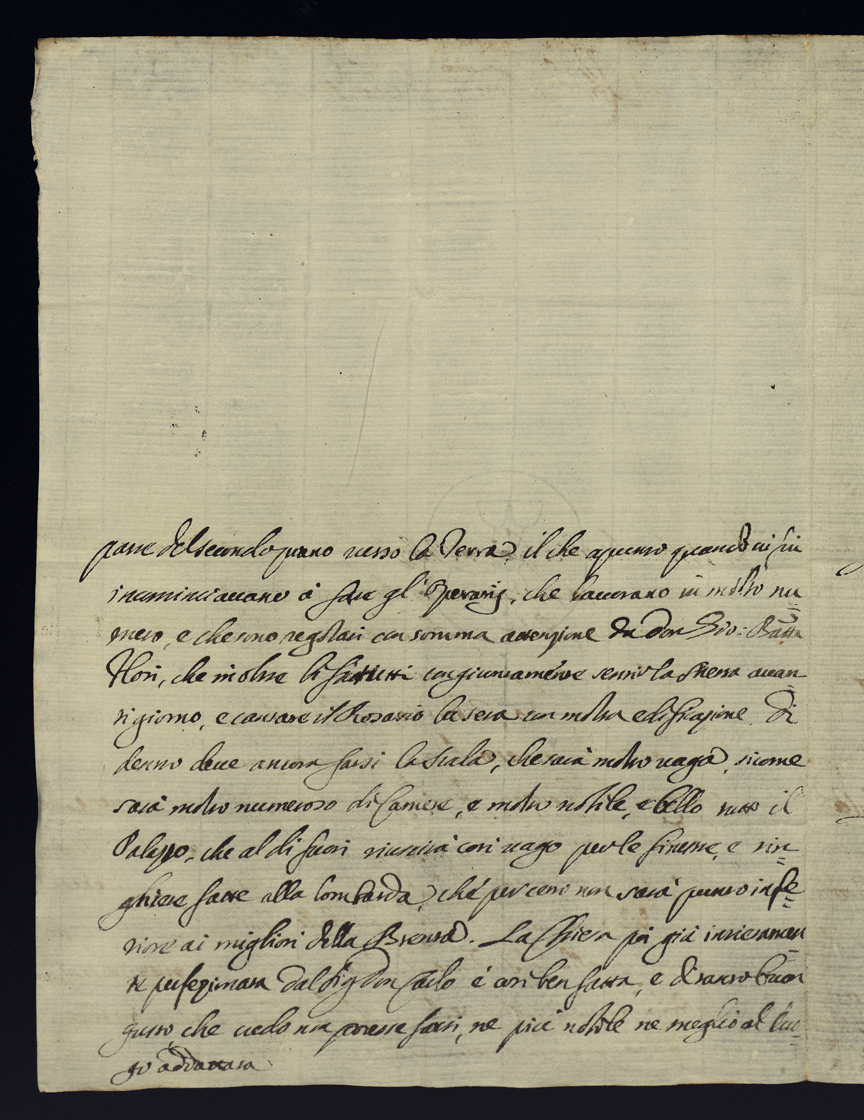 parte del secondo piano verso la Terra, il che appunto quando vi fui
incominciavano à fare gl'Operarij, che lavorano in molto nu=
mero, e che sono regolati con somma attenzione da Don Gio: Batta
Flori, che inoltre li fà tutti congiuntamente sentir la Messa avan
ti giorno, e cantare il Rosario la sera con molta edificazione. Di
dentro deve ancora farsi la Scala, che sarà molto vaga, sicome
sarà molto numeroso di Camere, e molto nobile, e bello tutto il
Palazzo, che al di fuori riuscirà così vago per le finestre, e rin=
ghiere fatte alla lombarda, che per certo non sarà punto infe=
riore ai migliori della Brenta. La Chiesa poi già intieramen=
te perfezionata dal Sig Don Carlo é così ben fatta, e di tanto buon
gusto, che credo non potesse farsi, ne più nobile ne meglio al luo=
go addattata